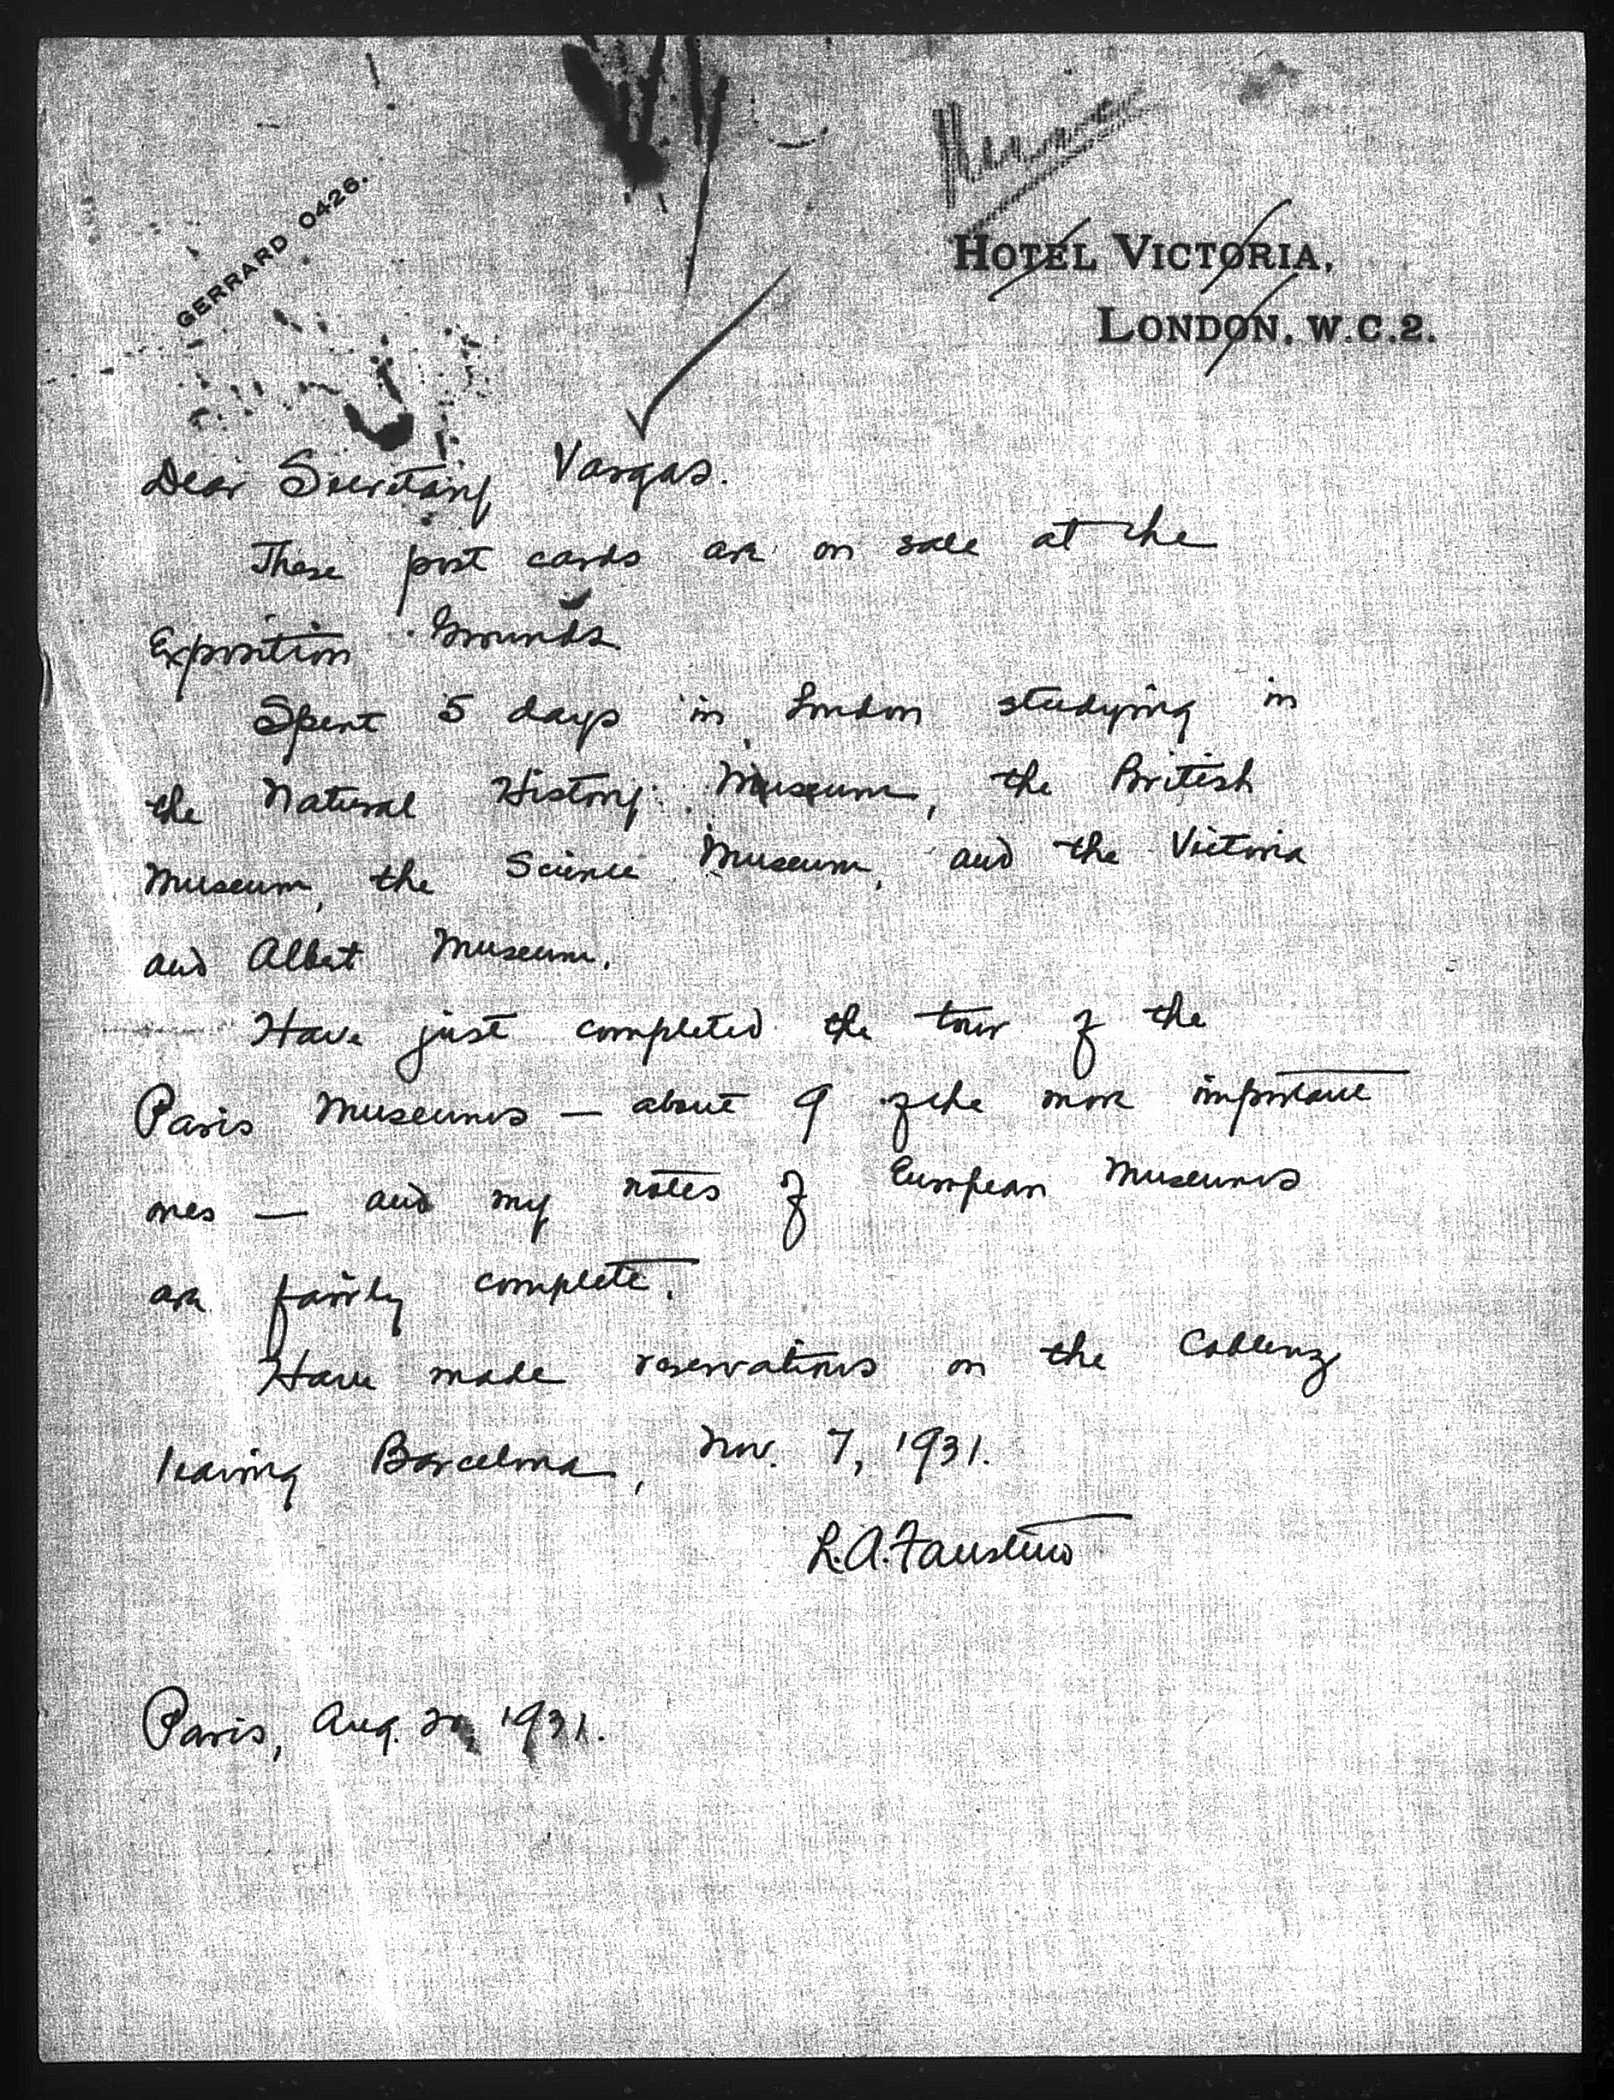 GERRARD 0426.
HOTEL VICTORIA,
LONDON, W.C.2.
Dear Secretary Vargas.
These post cards are on sale at the
Exposition Grounds
Spent 5 days in London studying in
the Natural History Museum, the British
Museum, the Science Museum, and the Victoria
and Albert Museum.
Have just completed the tour of the
Paris Museums — about 9 of the more important
ones — and my notes of European Museums
are fairly complete.
Have made reservations on the Coblenz
leaving Barcelona, Nov. 7, 1931.
L.A. Faustino
Paris, Aug. 20, 1931.